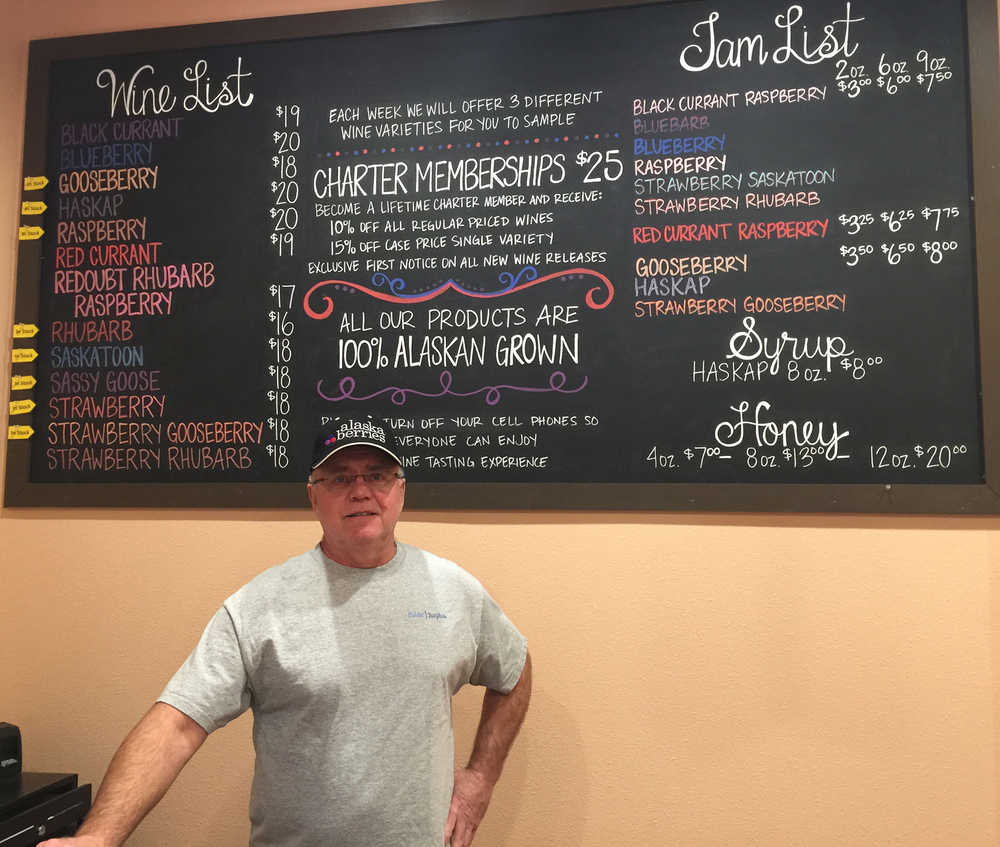 Wine List
BLACK CURRANT $19
BLUEBERRY $20
GOOSEBERRY $18
HASKAP $20
RASPBERRY $20
RED CURRANT $19
REDOUBT RHUBARB
RASPBERRY $17
RHUBARB $16
SASKATOON $18
SASSY GOOSE $18
STRAWBERRY $18
STRAWBERRY GOOSEBERRY $18
STRAWBERRY RHUBARB $18
In Stock
In Stock
In Stock
In Stock
In Stock
In Stock
In Stock
In Stock
EACH WEEK WE WILL OFFER 3 DIFFERENT
WINE VARIETIES FOR YOU TO SAMPLE
CHARTER MEMBERSHIPS $25
BECOME A LIFETIME CHARTER MEMBER AND RECEIVE:
10% OFF ALL REGULAR PRICED WINES
15% OFF CASE PRICE SINGLE VARIETY
EXCLUSIVE FIRST NOTICE ON ALL NEW WINE RELEASES
ALL OUR PRODUCTS ARE
100% ALASKAN GROWN
TURN OFF YOUR CELL PHONES SO
EVERYONE CAN ENJOY
TASTING EXPERIENCE
Jam List
2oz. 6oz. 9oz.
BLACK CURRANT RASPBERRY $3.00 $6.00 $7.50
BLUEBARB
BLUEBERRY
RASPBERRY
STRAWBERRY SASKATOON
STRAWBERRY RHUBARB
RED CURRANT RASPBERRY $3.25 $6.25 $7.75
GOOSEBERRY $3.50 $6.50 $8.00
HASKAP
STRAWBERRY GOOSEBERRY
Syrup
HASKAP 8oz. $8.00
Honey
4oz. $7.00- 8oz. $13.00- 12oz. $20.00
alaska
berries